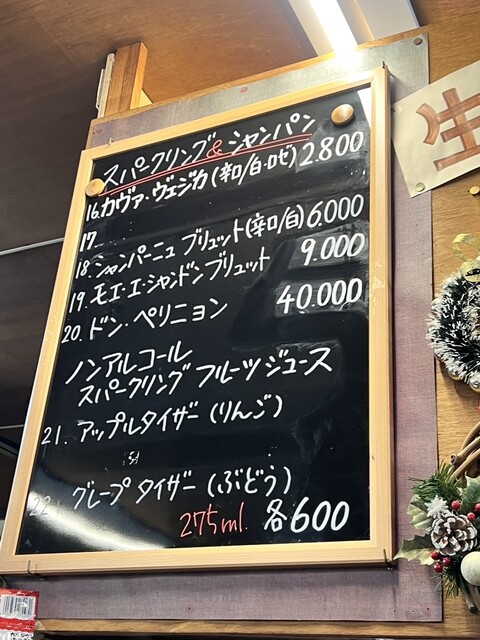 スパークリング&シャンパン
16.カヴァ・ヴェジカ(辛口/白・ロゼ)2.800
17
18.シャンパーニュ ブリュット(辛口/白)6.000
19.モエ・エ・シャンドンブリュット 9.000
20.ドン・ペリニョン 40.000
ノンアルコール
スパークリング フルーツジュース
21.アップルタイザー(りんご)
22.グレープタイザー(ぶどう)
275ml. 各600
生